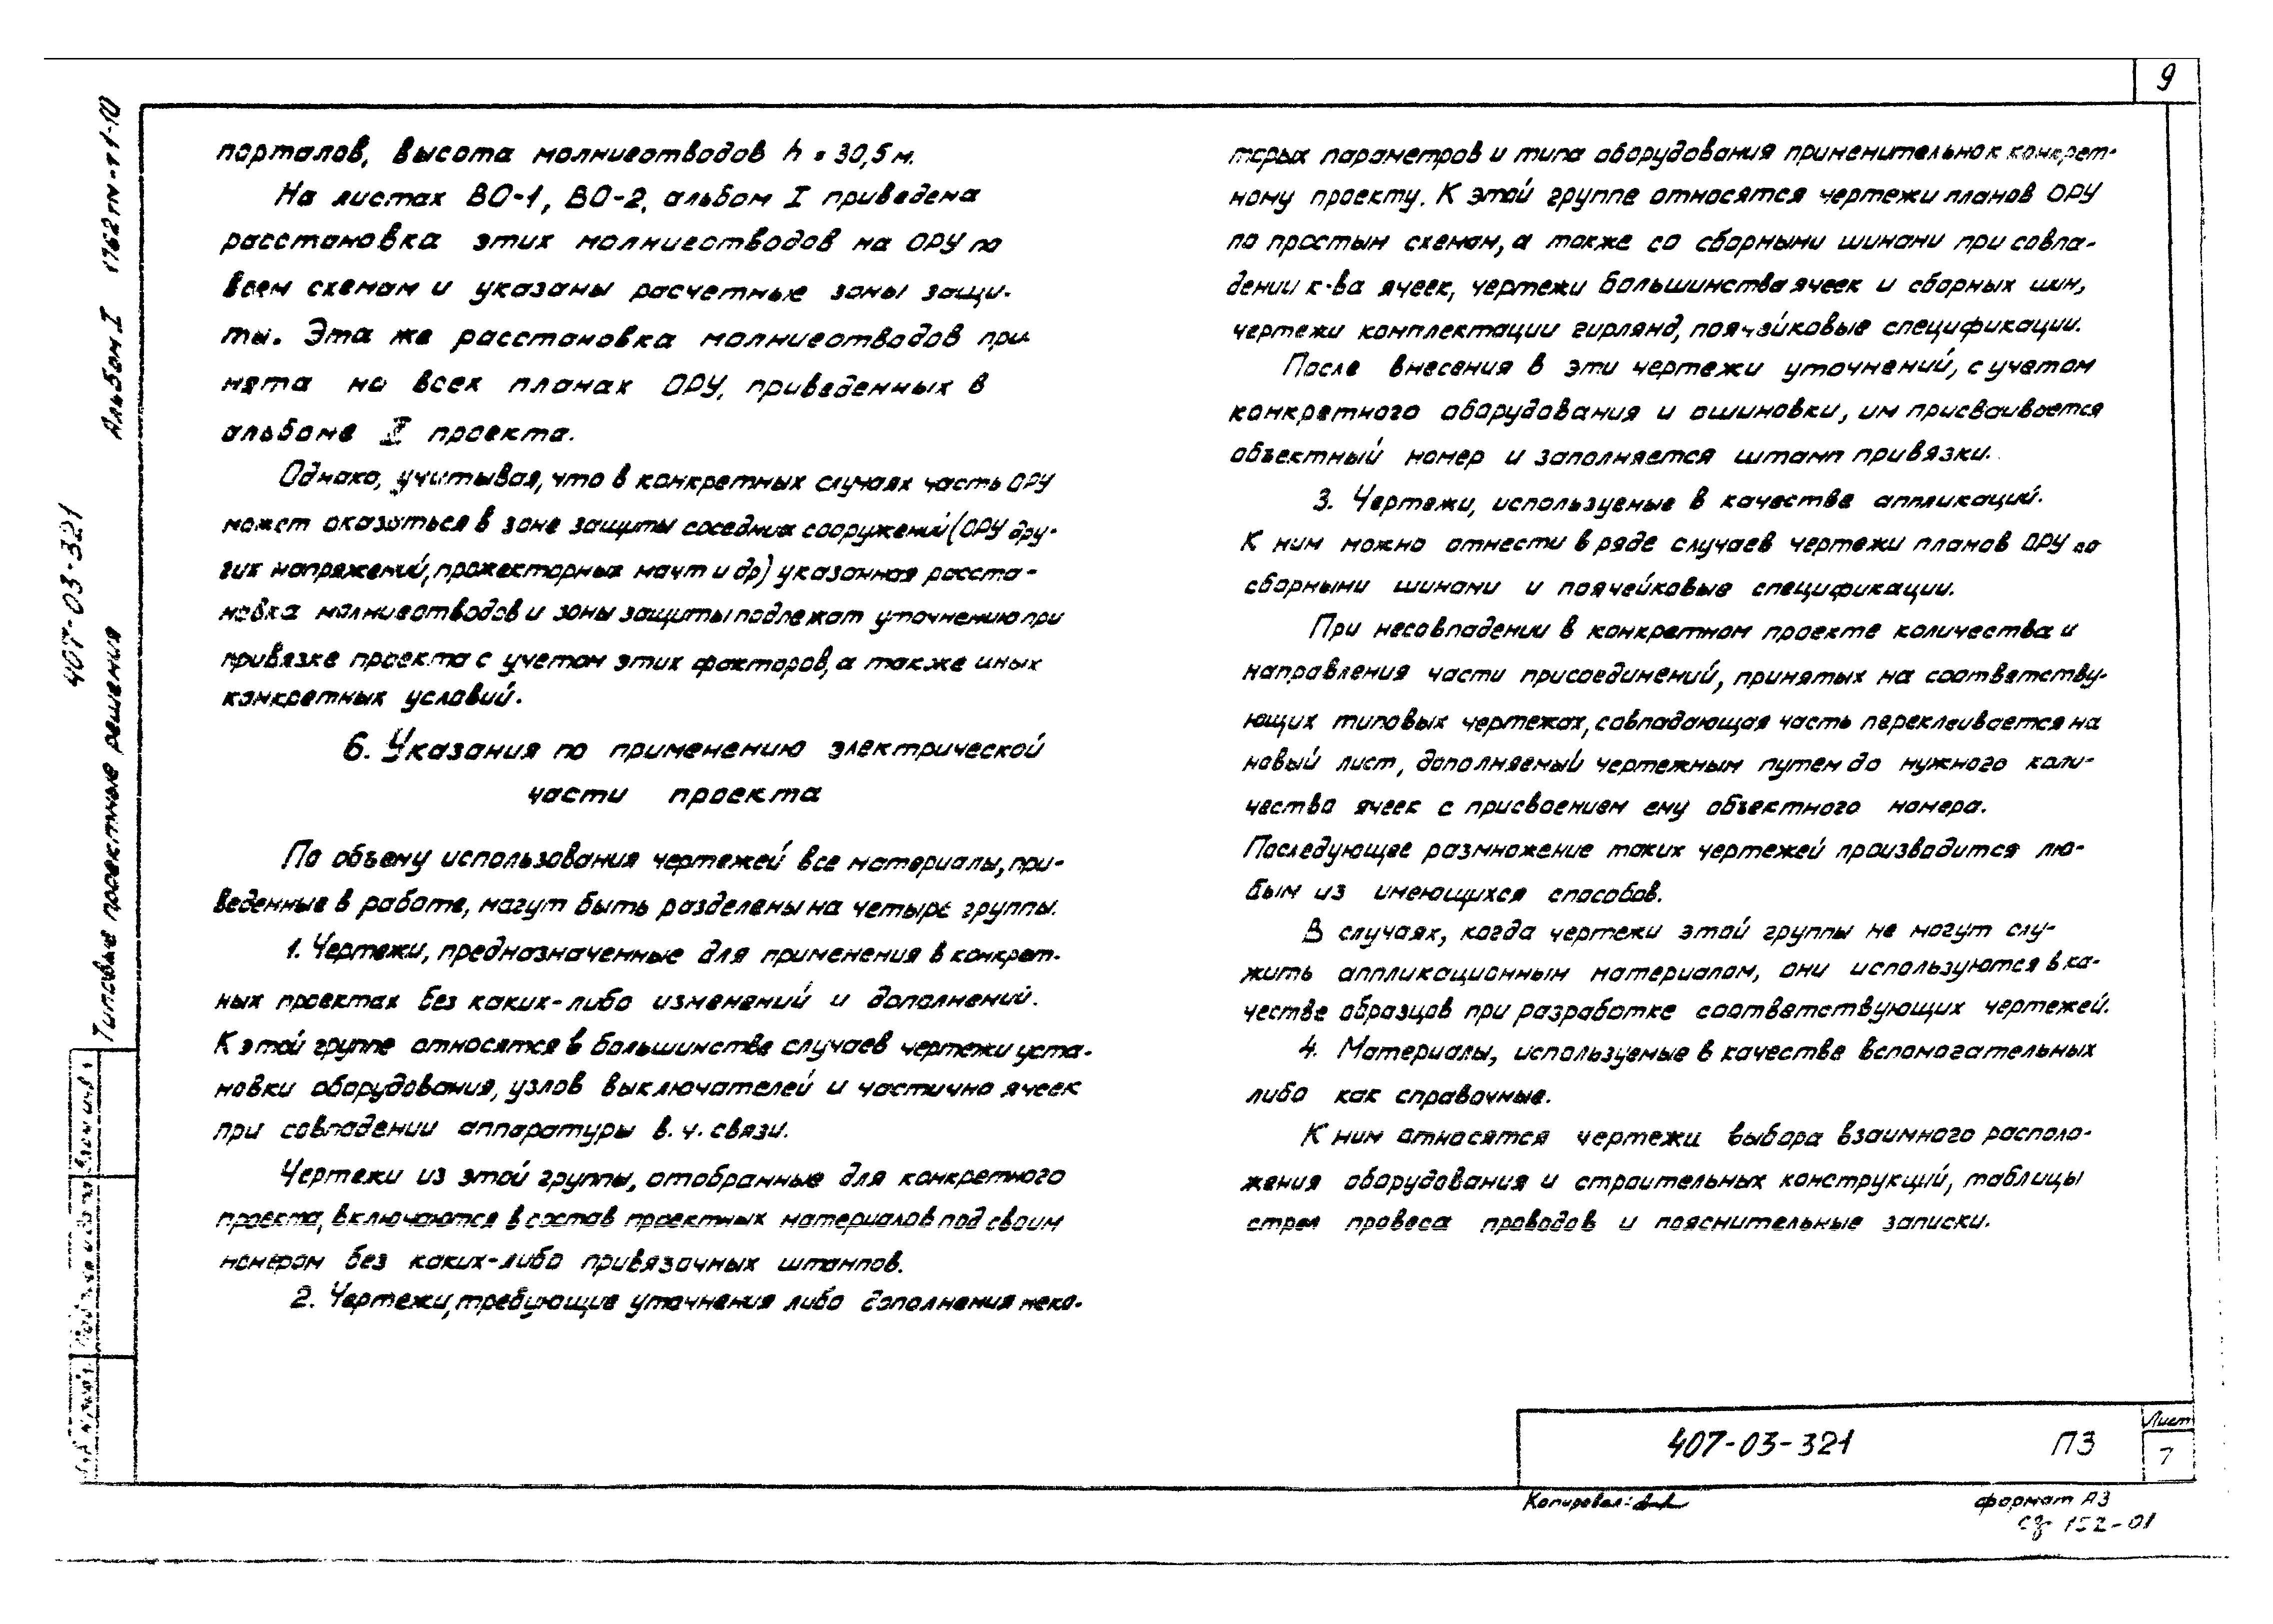 9
порталов, высота молниеотводов h = 30,5 м.
На листах ВО-1, ВО-2, альбом I приведена
расстановка этих молниеотводов на ОРУ по
всем схемам и указаны расчетные зоны защи-
ты. Эта же расстановка молниеотводов при-
нята на всех планах ОРУ, приведенных в
альбоме II проекта.
Однако, учитывая, что в конкретных случаях часть ОРУ
может оказаться в зоне защиты соседних сооружений (ОРУ дру-
гих напряжений, прожекторных мачт и др) указанная расста-
новка молниеотводов и зоны защиты подлежат уточнению при
привязке проекта с учетом этих факторов, а также иных
конкретных условий.
6. Указания по применению электрической
части проекта
По объему использования чертежей все материалы, при-
веденные в работе, могут быть разделены на четыре группы.
1. Чертежи, предназначенные для применения в конкрет-
ных проектах без каких-либо изменений и дополнений.
К этой группе относятся в большинстве случаев чертежи уста-
новки оборудования, узлов выключателей и частично ячеек
при совпадении аппаратуры в.ч. связи.
Чертежи из этой группы, отобранные для конкретного
проекта, включаются в состав проектных материалов под своим
номером без каких-либо привязочных штампов.
2. Чертежи, требующие уточнения либо дополнения неко-
торых параметров и типа оборудования применительно к конкрет-
ному проекту. К этой группе относятся чертежи планов ОРУ
по простым схемам, а также со сборными шинами при совпа-
дении к-ва ячеек, чертежи большинства ячеек и сборных шин,
чертежи комплектации гирлянд, поячейковые спецификации.
После внесения в эти чертежи уточнений, с учетом
конкретного оборудования и ошиновки, им присваивается
объектный номер и заполняется штамп привязки.
3. Чертежи, используемые в качестве аппликаций.
К ним можно отнести в ряде случаев чертежи планов ОРУ со
сборными шинами и поячейковые спецификации.
При несовпадении в конкретном проекте количества и
направления части присоединений, принятых на соответству-
ющих типовых чертежах, совпадающая часть переклеивается на
новый лист, дополняемый чертежным путем до нужного коли-
чества ячеек с присвоением ему объектного номера.
Последующее размножение таких чертежей производится лю-
бым из имеющихся способов.
В случаях, когда чертежи этой группы не могут слу-
жить аппликационным материалом, они используются в ка-
честве образцов при разработке соответствующих чертежей.
4. Материалы, используемые в качестве вспомогательных
либо как справочные.
К ним относятся чертежи выбора взаимного располо-
жения оборудования и строительных конструкций, таблицы
стрел провеса проводов и пояснительные записки.
407-03-321
Типовые проектные решения Альбом I 1762тм-т1-10
407-03-321 ПЗ
Лист
7
Копировал:
формат А3
152-01